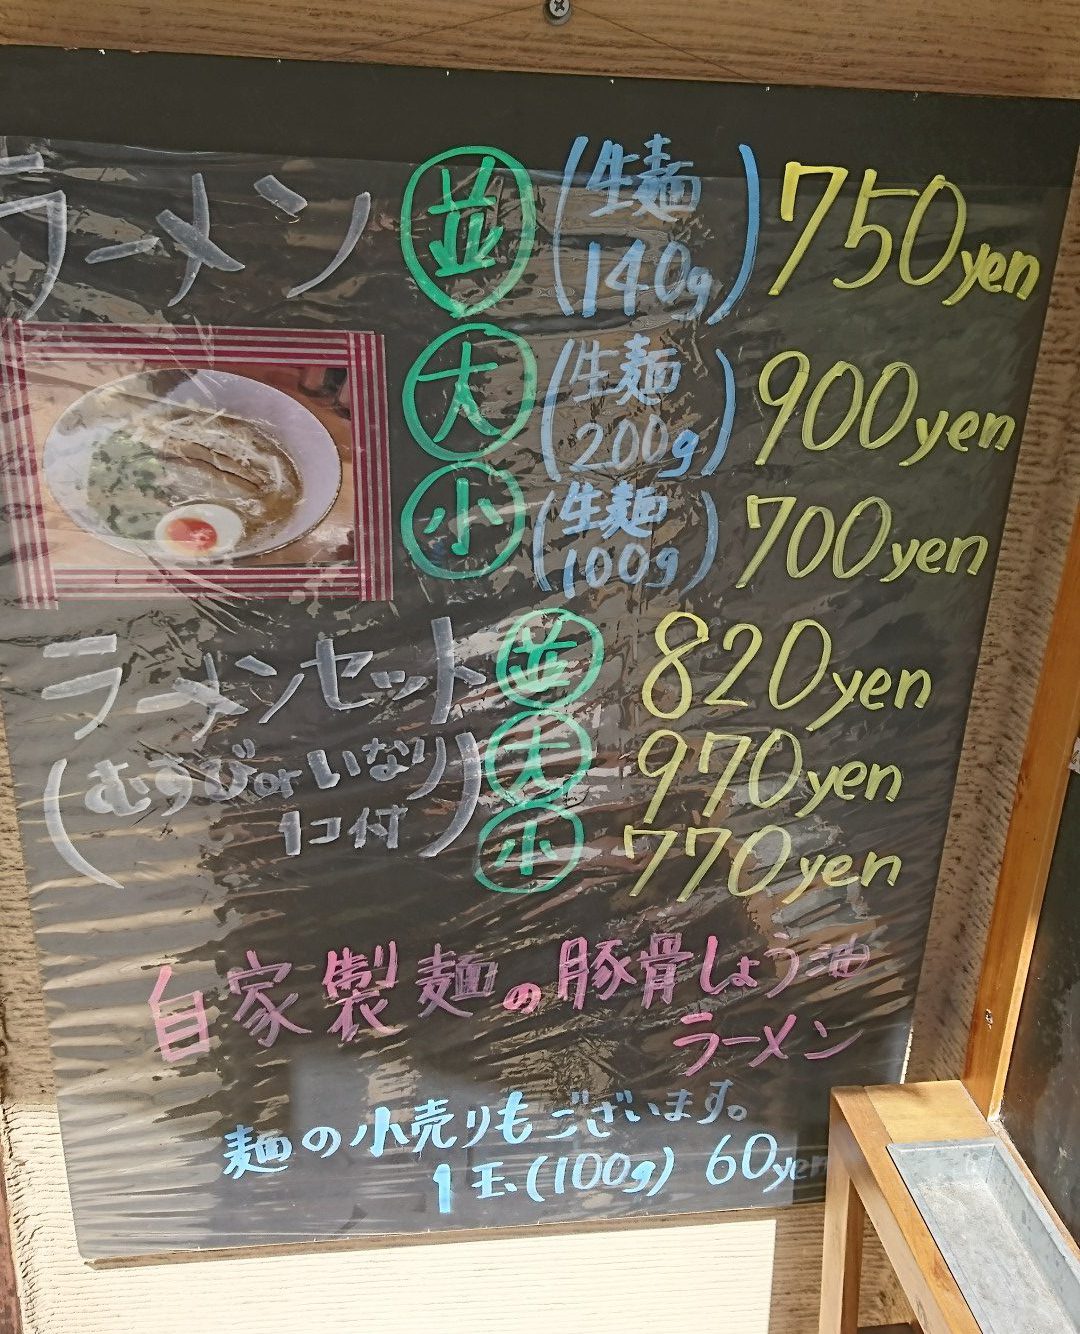 ラーメン 並 (生麺 140g) 750yen
大 (生麺 200g) 900yen
小 (生麺 100g) 700yen
ラーメンセット 並 820yen
(むすびorいなり 大 970yen
1コ付) 小 770yen
自家製麺の豚骨しょう油
ラーメン
麺の小売りもございます。
1玉(100g) 60yen